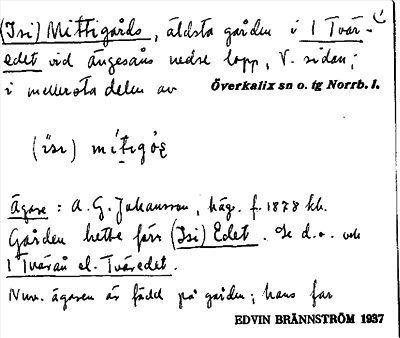 (Isi) Mittigårds, äldsta gården i 1 Tvär-
edet vid ängesåns nedre lopp, V. sidan;
i mellersta delen av
Överkalix sn o. tg Norrb. l.
(ïsɩ) mítɩgǫ̀ș
Ägare: A. G. Johansson, häg. f. 1878 kh.
Gården hette förr (Isi) Edet. Se d.o. och
1 Tväran el. Tväredet.
Nuv. ägaren är född på gården; hans far
EDVIN BRÄNNSTRÖM 1937